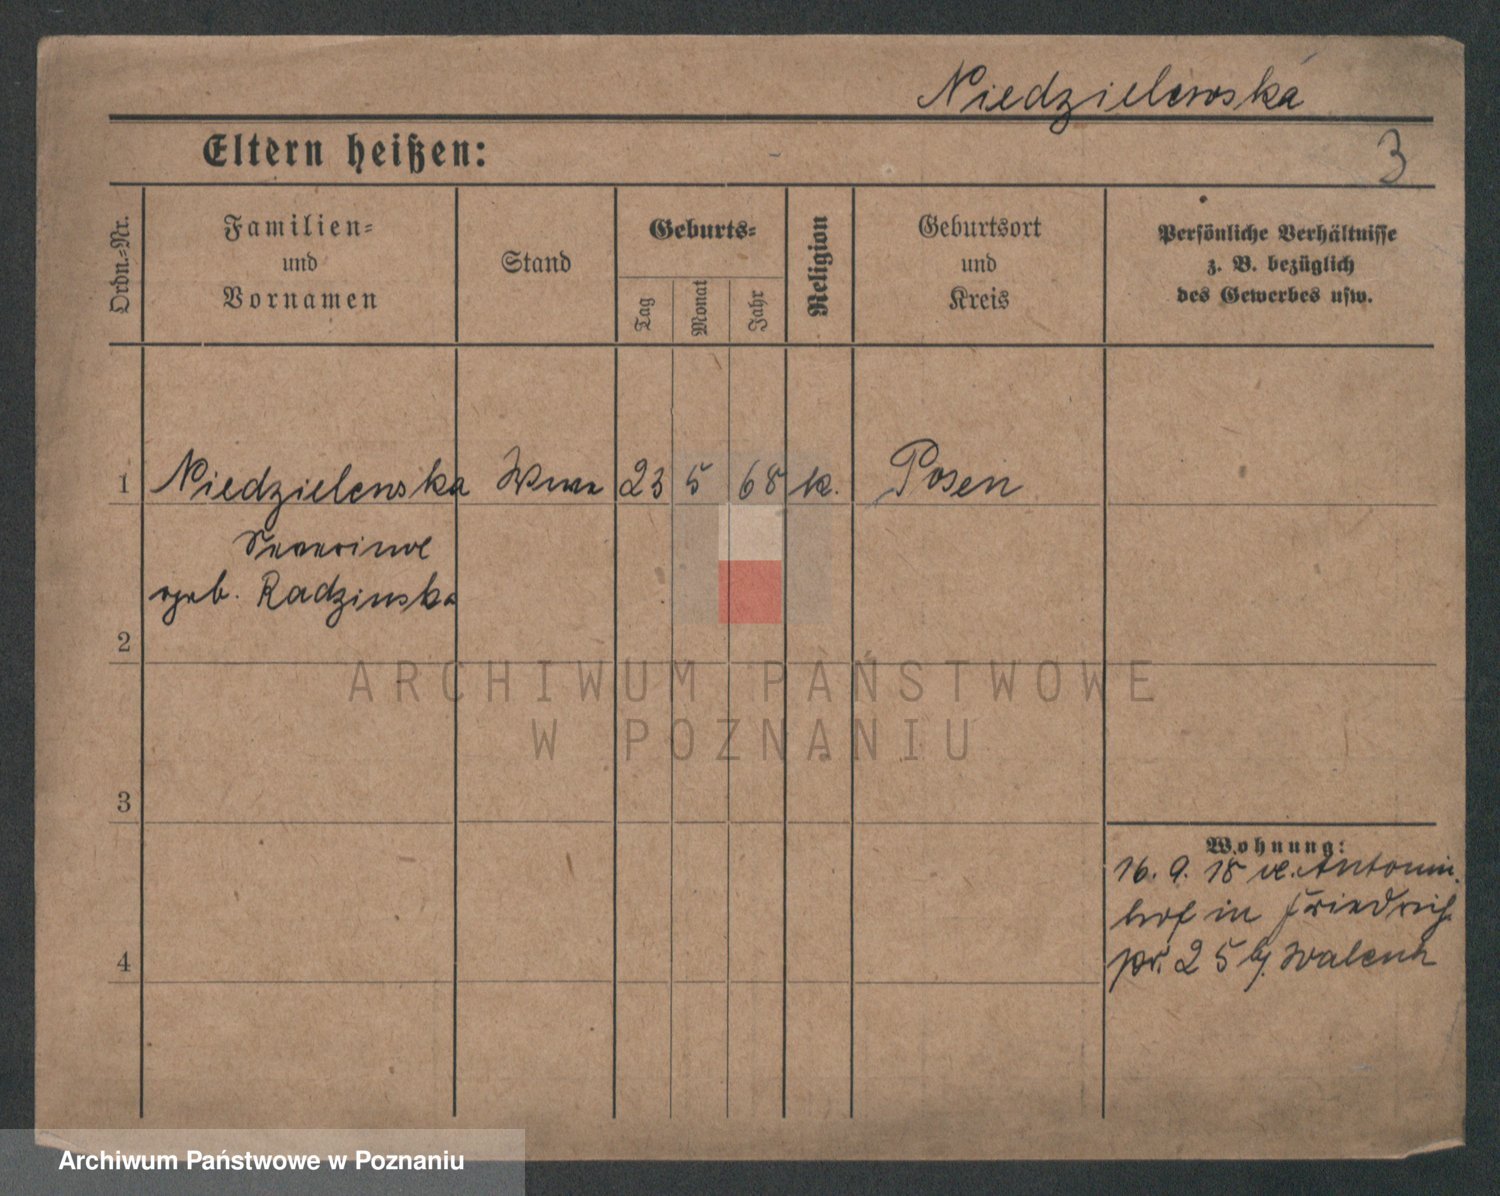 Niedzielewska
Eltern heißen:
3
Ordn.=Nr.
Familien=
und
Vornamen
Stand
Geburts=
Tag
Monat
Jahr
Religion
Geburtsort
und
Kreis
Persönliche Verhältnisse
z. B. bezüglich
des Gewerbes usw.
1 Niedzielewska Wwe 23 5 68 k. Posen
geb. Radzinska
2
ARCHIWUM PAŃSTWOWE
W POZNANIU
3
Wohnung:
16. 9. 18 Antonin
hof in Friedrich
4
25 b/
Archiwum Państwowe w Poznaniu